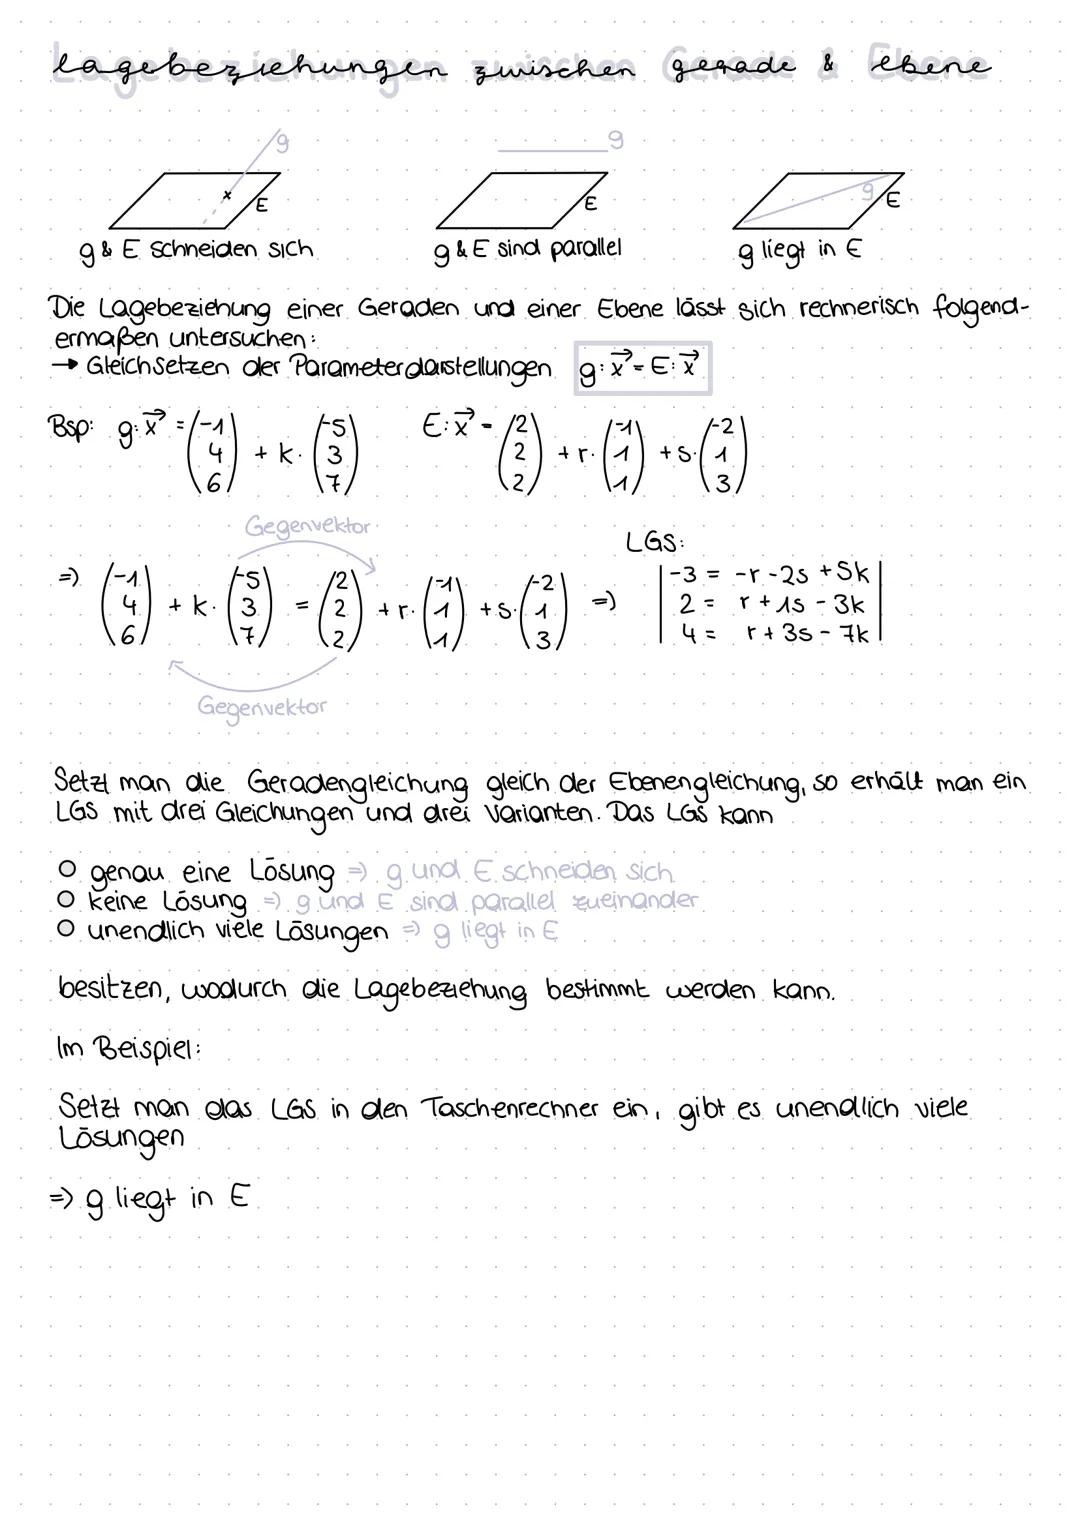 Lagebeziehungen zwischen Gerade & Ebene
g g
x E E g E
g & E schneiden sich g & E sind parallel g liegt in E
Die Lagebeziehung einer Geraden und einer Ebene lässt sich rechnerisch folgend-
ermaßen untersuchen:
→ Gleichsetzen der Parameterdarstellungen g:x⃗ = E:x⃗
Bsp: g:x⃗ = (-1 4 6) + k· (-5 3 7) E:x⃗ = (2 2 2) + r· (-1 1 1) + s· (-2 1 3)
Gegenvektor
LGS:
=> (-1 4 6) + k· (-5 3 7) = (2 2 2) + r· (-1 1 1) + s· (-2 1 3) =>
|-3 = -r -2s +5k|
|2 = r + 1s - 3k|
|4 = r + 3s - 7k|
Gegenvektor
Setzt man die Geradengleichung gleich der Ebenengleichung, so erhält man ein
LGS mit drei Gleichungen und drei Varianten. Das LGS kann
O genau eine Lösung => g und E schneiden sich
O keine Lösung => g und E sind parallel zueinander
O unendlich viele Lösungen => g liegt in E
besitzen, wodurch die Lagebeziehung bestimmt werden kann.
Im Beispiel:
Setzt man das LGS in den Taschenrechner ein, gibt es unendlich viele
Lösungen
=> g liegt in E